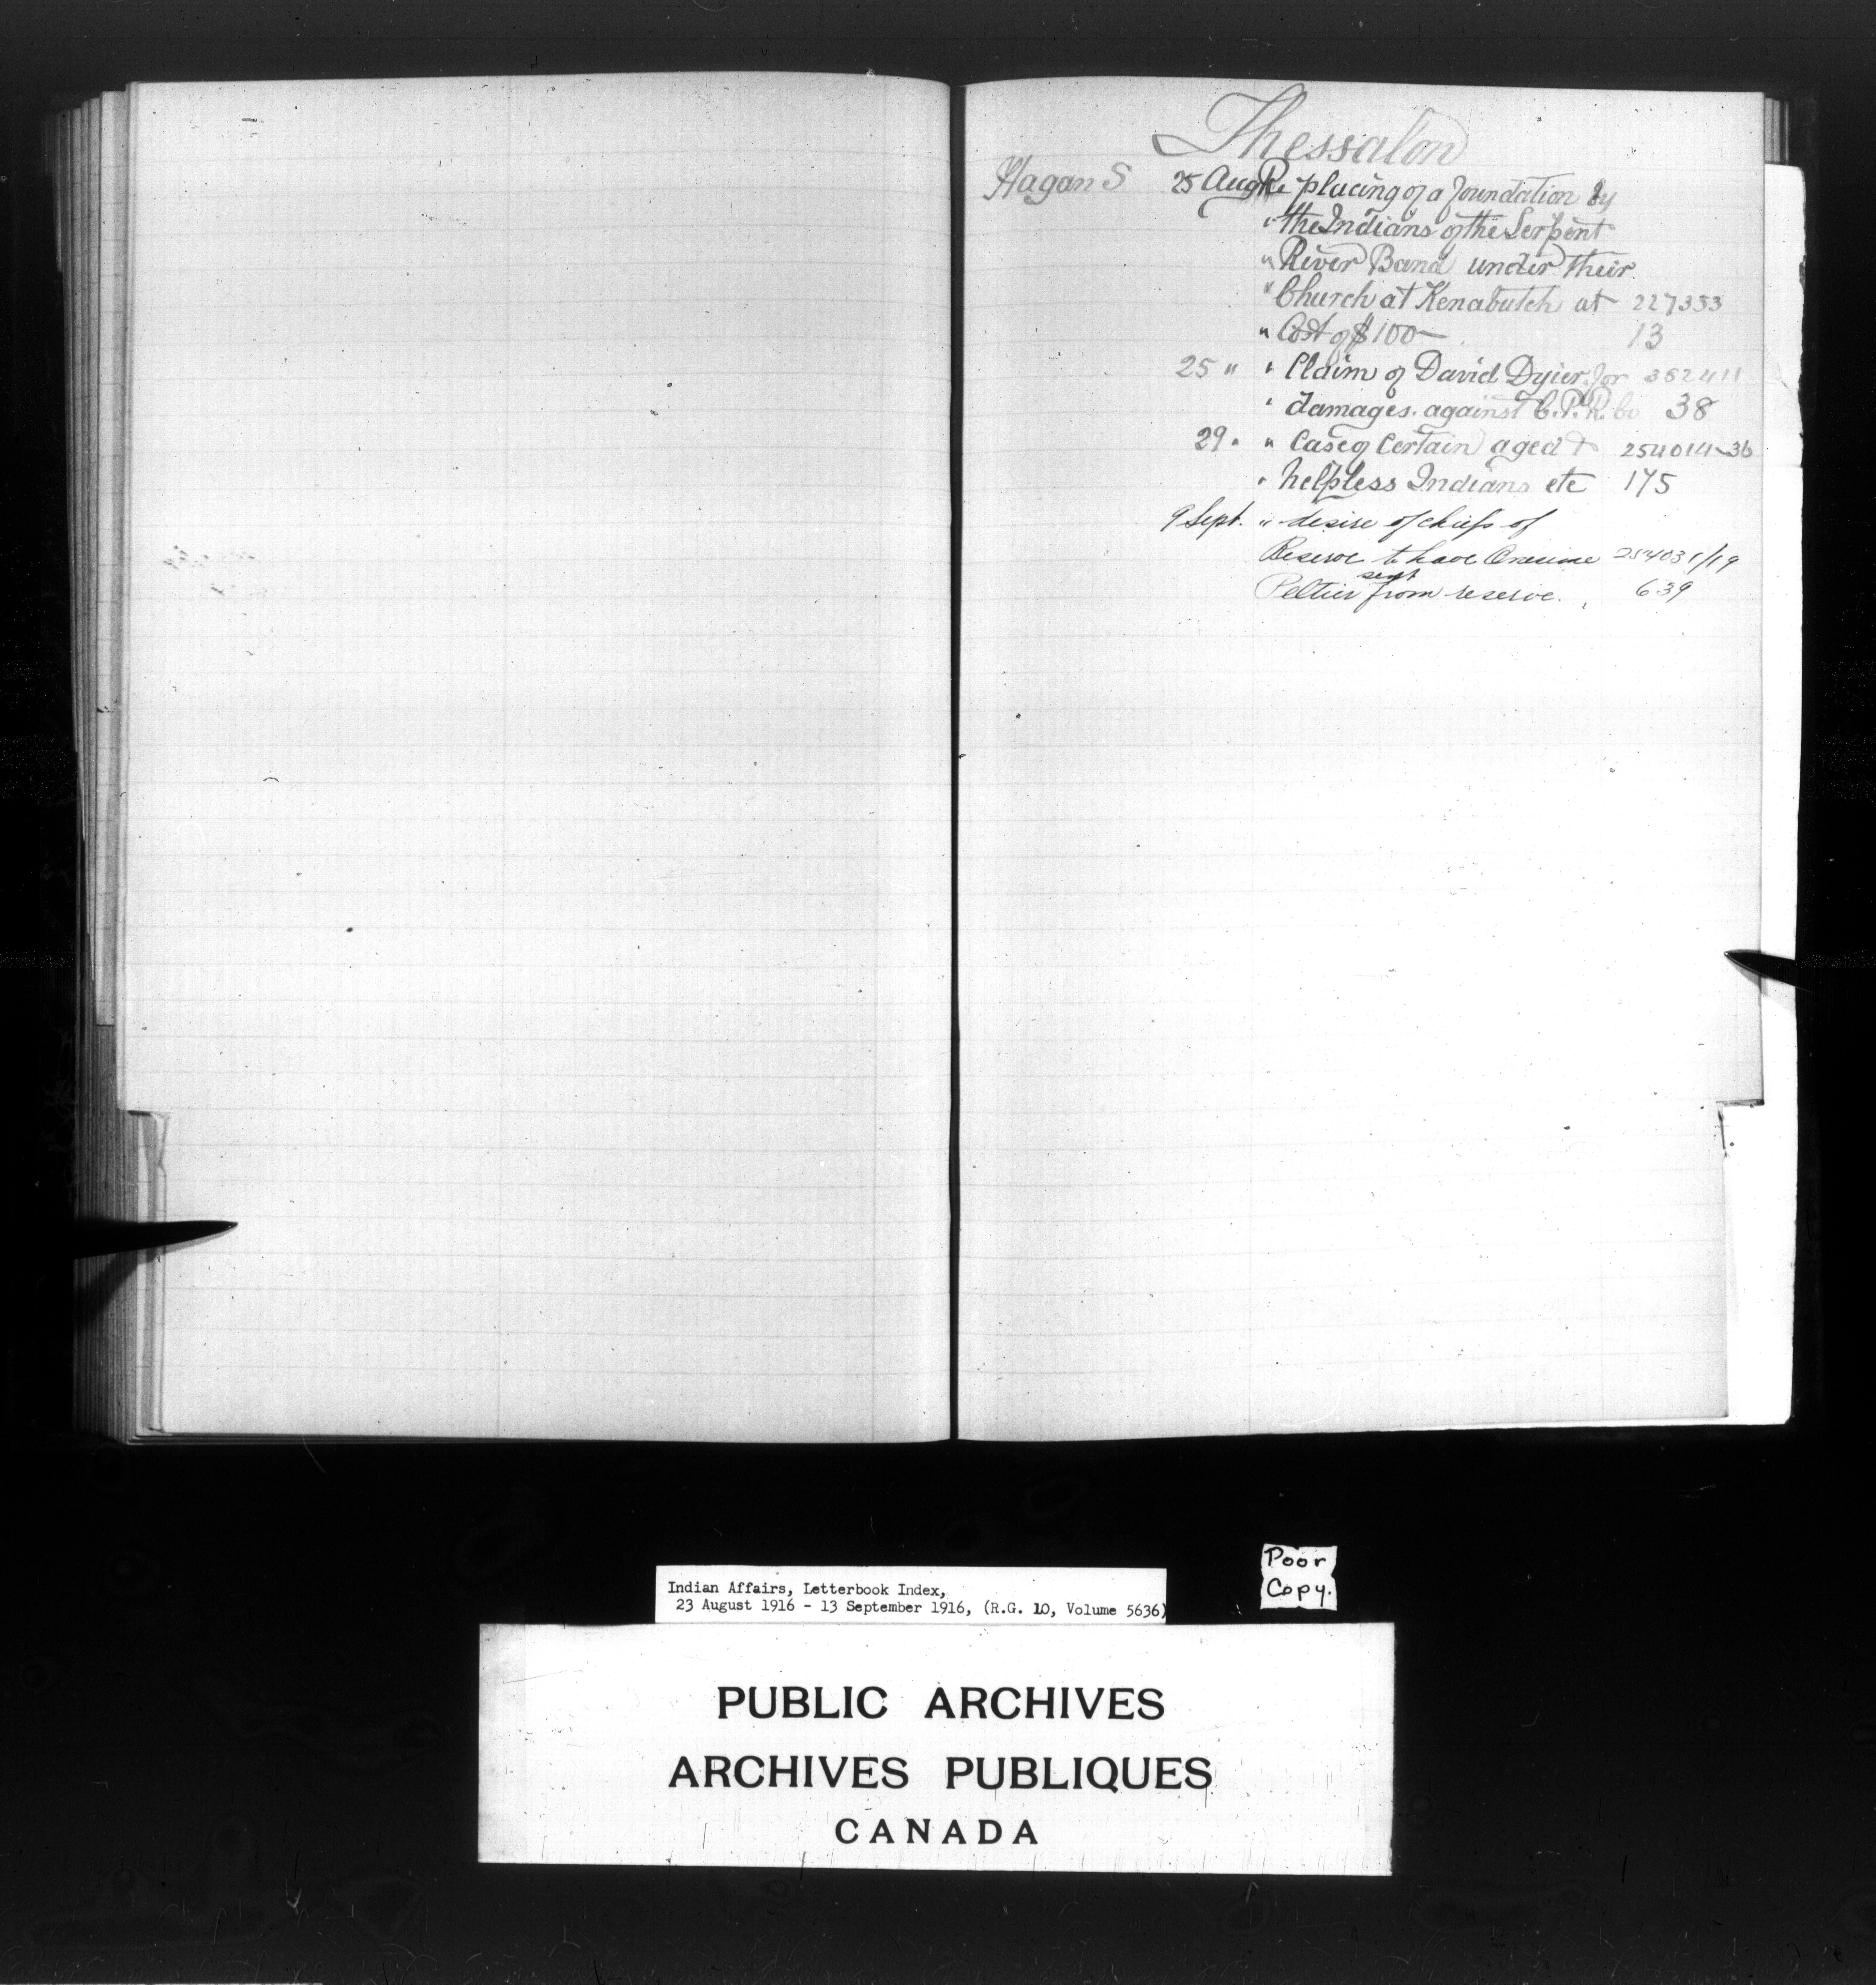 Thessalon
Hagan S 25 Aug Re placing of a foundation by
" the Indians of the Serpent
" River Band under their
" Church at Kenabutch at 227353
" Cost of $100— 13
25 " " Claim of David Dyier for 382411
" damages against C.P.R. Co 38
29 " " Case of Certain aged & 254014-36
" helpless Indians etc 175
9 Sept. " desire of chiefs of
Reserve to have 254031/19
sent
Peltier from reserve. 639
Poor
Copy.
Indian Affairs, Letterbook Index,
23 August 1916 - 13 September 1916, (R.G. 10, Volume 5636)
PUBLIC ARCHIVES
ARCHIVES PUBLIQUES
CANADA